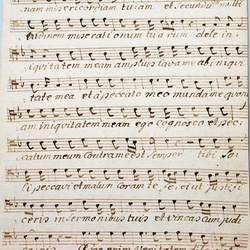 nam misericordiam tuam et secundũ multi
tudinem miserationum tuarum dele in
iquitatem meam amplius lava me ab iniqui
tate mea et a peccato meo munda me quon
iam iniquitatem meam ego cognosco et pec
catum meum contra me est semper tibi so
li peccavi et malum coram te feci ut justifi
ceris in sermonibus tuis et vincas cum judi
caris Ecce enim veritatem